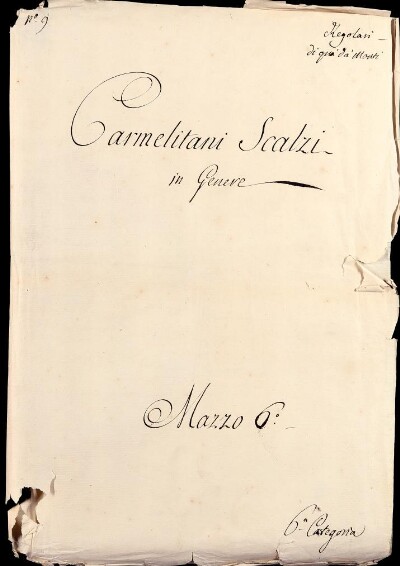 n.º 9
Regolari
di quà da' Monti
Carmelitani Scalzi
in Genere
Mazzo 6.º
6.ª Categoria